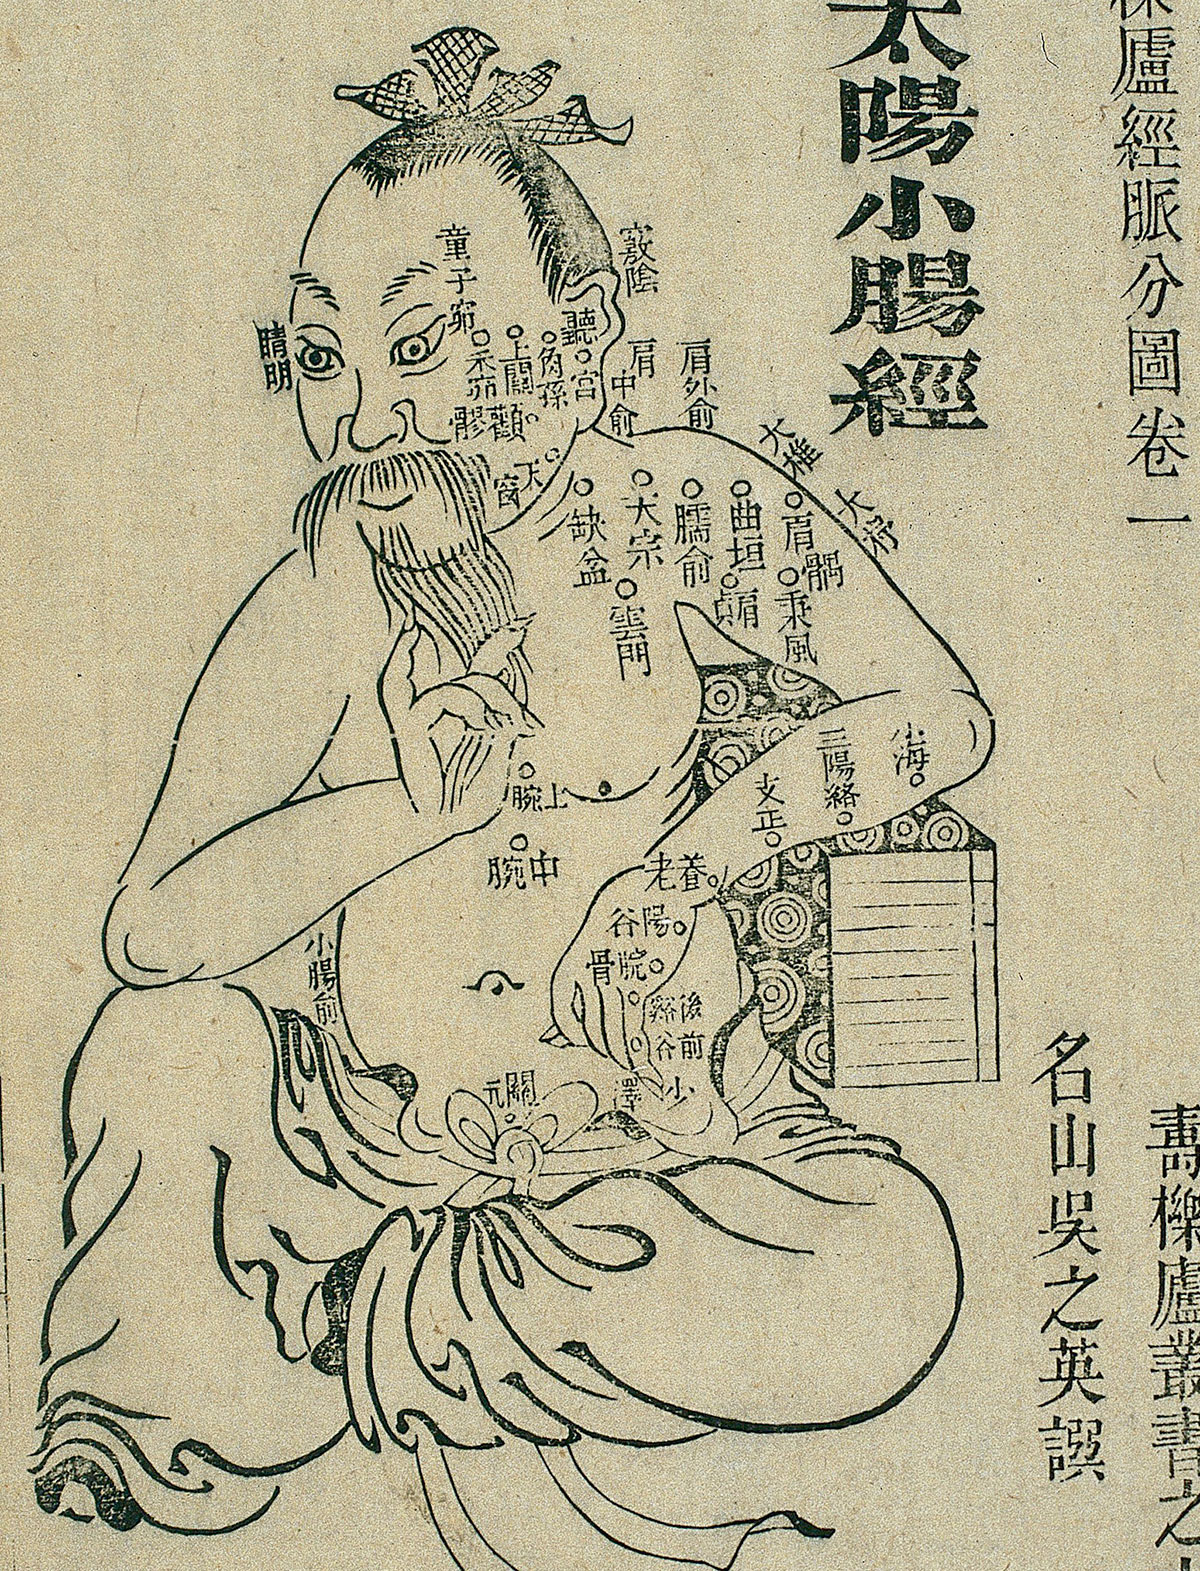 廬經脈分圖卷一
壽櫟廬叢書之
名山吳之英譔
太陽小腸經
竅陰
童子窌
睛明
聽宮
角孫
上關
禾窌
顴髎
天窗
肩中俞
肩外俞
大椎
大杼
缺盆
天宗
臑俞
曲垣
肩髃
肩貞
秉風
雲門
小海
三陽絡
支正
上脘
中脘
養老
陽谷
腕骨
後谿
前谷
小澤
小腸俞
關元